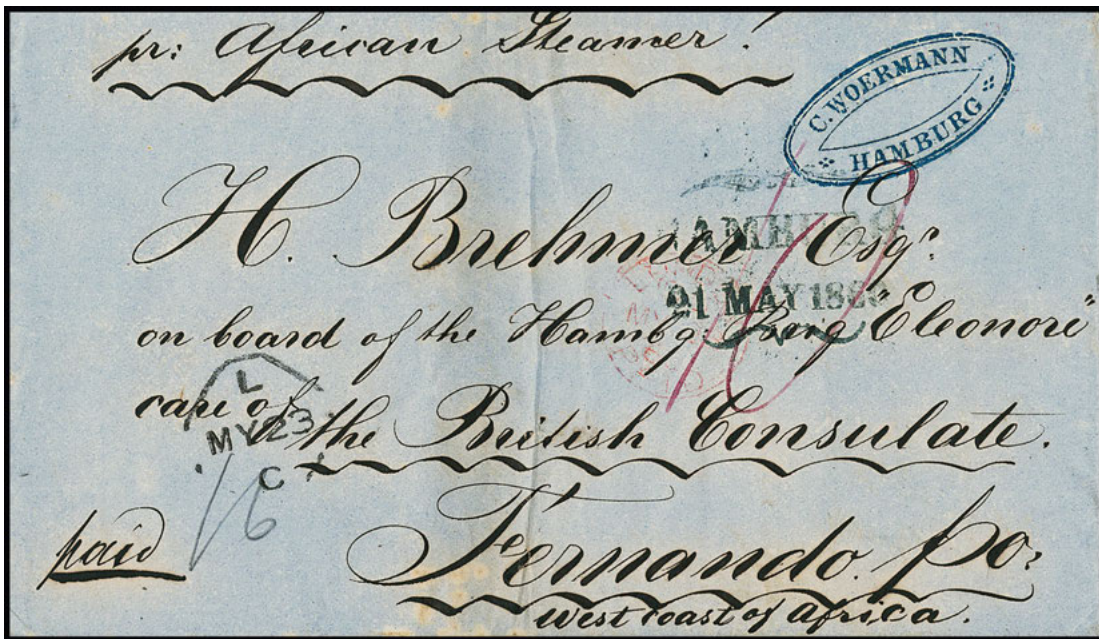 pr: African Steamer!
C. WOERMANN
HAMBURG
H. Brehmer Esqr.
HAMBURG
21 MAY
on board of the Hambg. Brig "Eleonore"
care of
the British Consulate.
L
MY 23
C X
1/6
paid
Fernando Po:
West Coast of Africa.